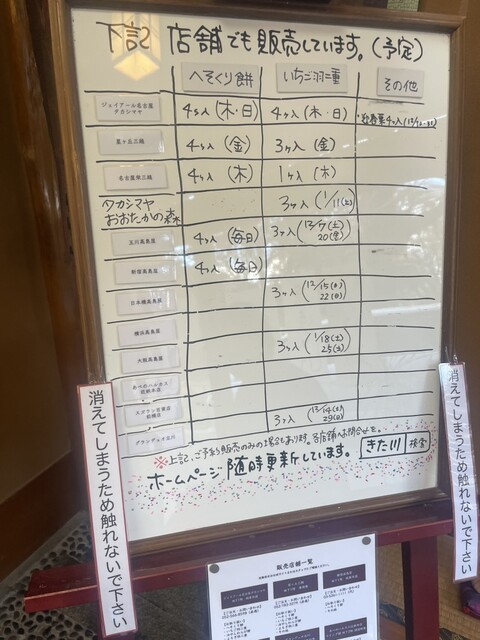 下記 店舗でも販売しています。(予定)
へそくり餅 いちご羽二重 その他
ジェイアール名古屋タカシマヤ 4ヶ入(木・日) 4ヶ入(木・日)
星ヶ丘三越 4ヶ入(金) 3ヶ入(金)
名古屋栄三越 4ヶ入(木) 1ヶ入(木)
タカシマヤ
おおたかの森 3ヶ入(1/11(土))
玉川髙島屋 4ヶ入(毎日) 3ヶ入(12/7(土)
20(金))
新宿髙島屋 4ヶ入(毎日)
日本橋髙島屋 3ヶ入(12/15(日)
22(日))
横浜髙島屋
大阪髙島屋 3ヶ入(1/18(土)
25(土))
あべのハルカス
近鉄本店
スズラン百貨店
前橋店 3ヶ入(12/14(土)
29(日))
グランデュオ立川
※上記、ご予約販売のみの場合もあります。各店舗へお問合せを。
ホームページ随時更新しています。 きた川 検索
消えてしまうため触れないで下さい
消えてしまうため触れないで下さい
販売店舗一覧